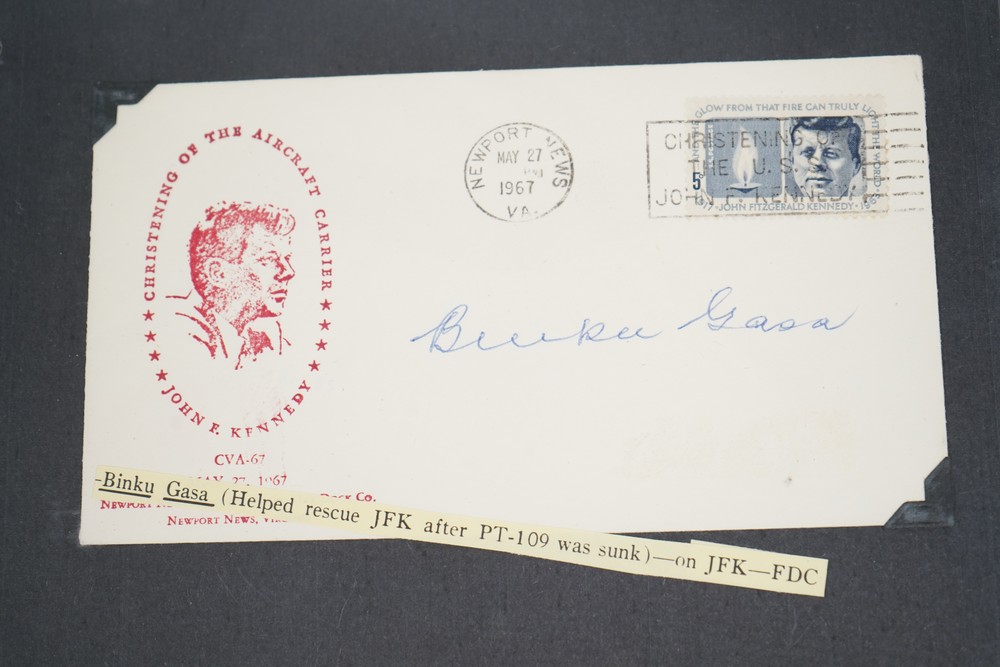 CHRISTENING OF THE AIRCRAFT CARRIER
JOHN F. KENNEDY
CVA-67
MAY 27, 1967
Dock Co.
NEWPORT NEWS,
NEWPORT NEWS
MAY 27
1967
VA.
CHRISTENING OF
THE U.S.
JOHN F. KENNEDY
GLOW FROM THAT FIRE CAN TRULY LIGHT THE WORLD
5
JOHN FITZGERALD KENNEDY
Binku Gasa
-Binku Gasa (Helped rescue JFK after PT-109 was sunk)—on JFK—FDC